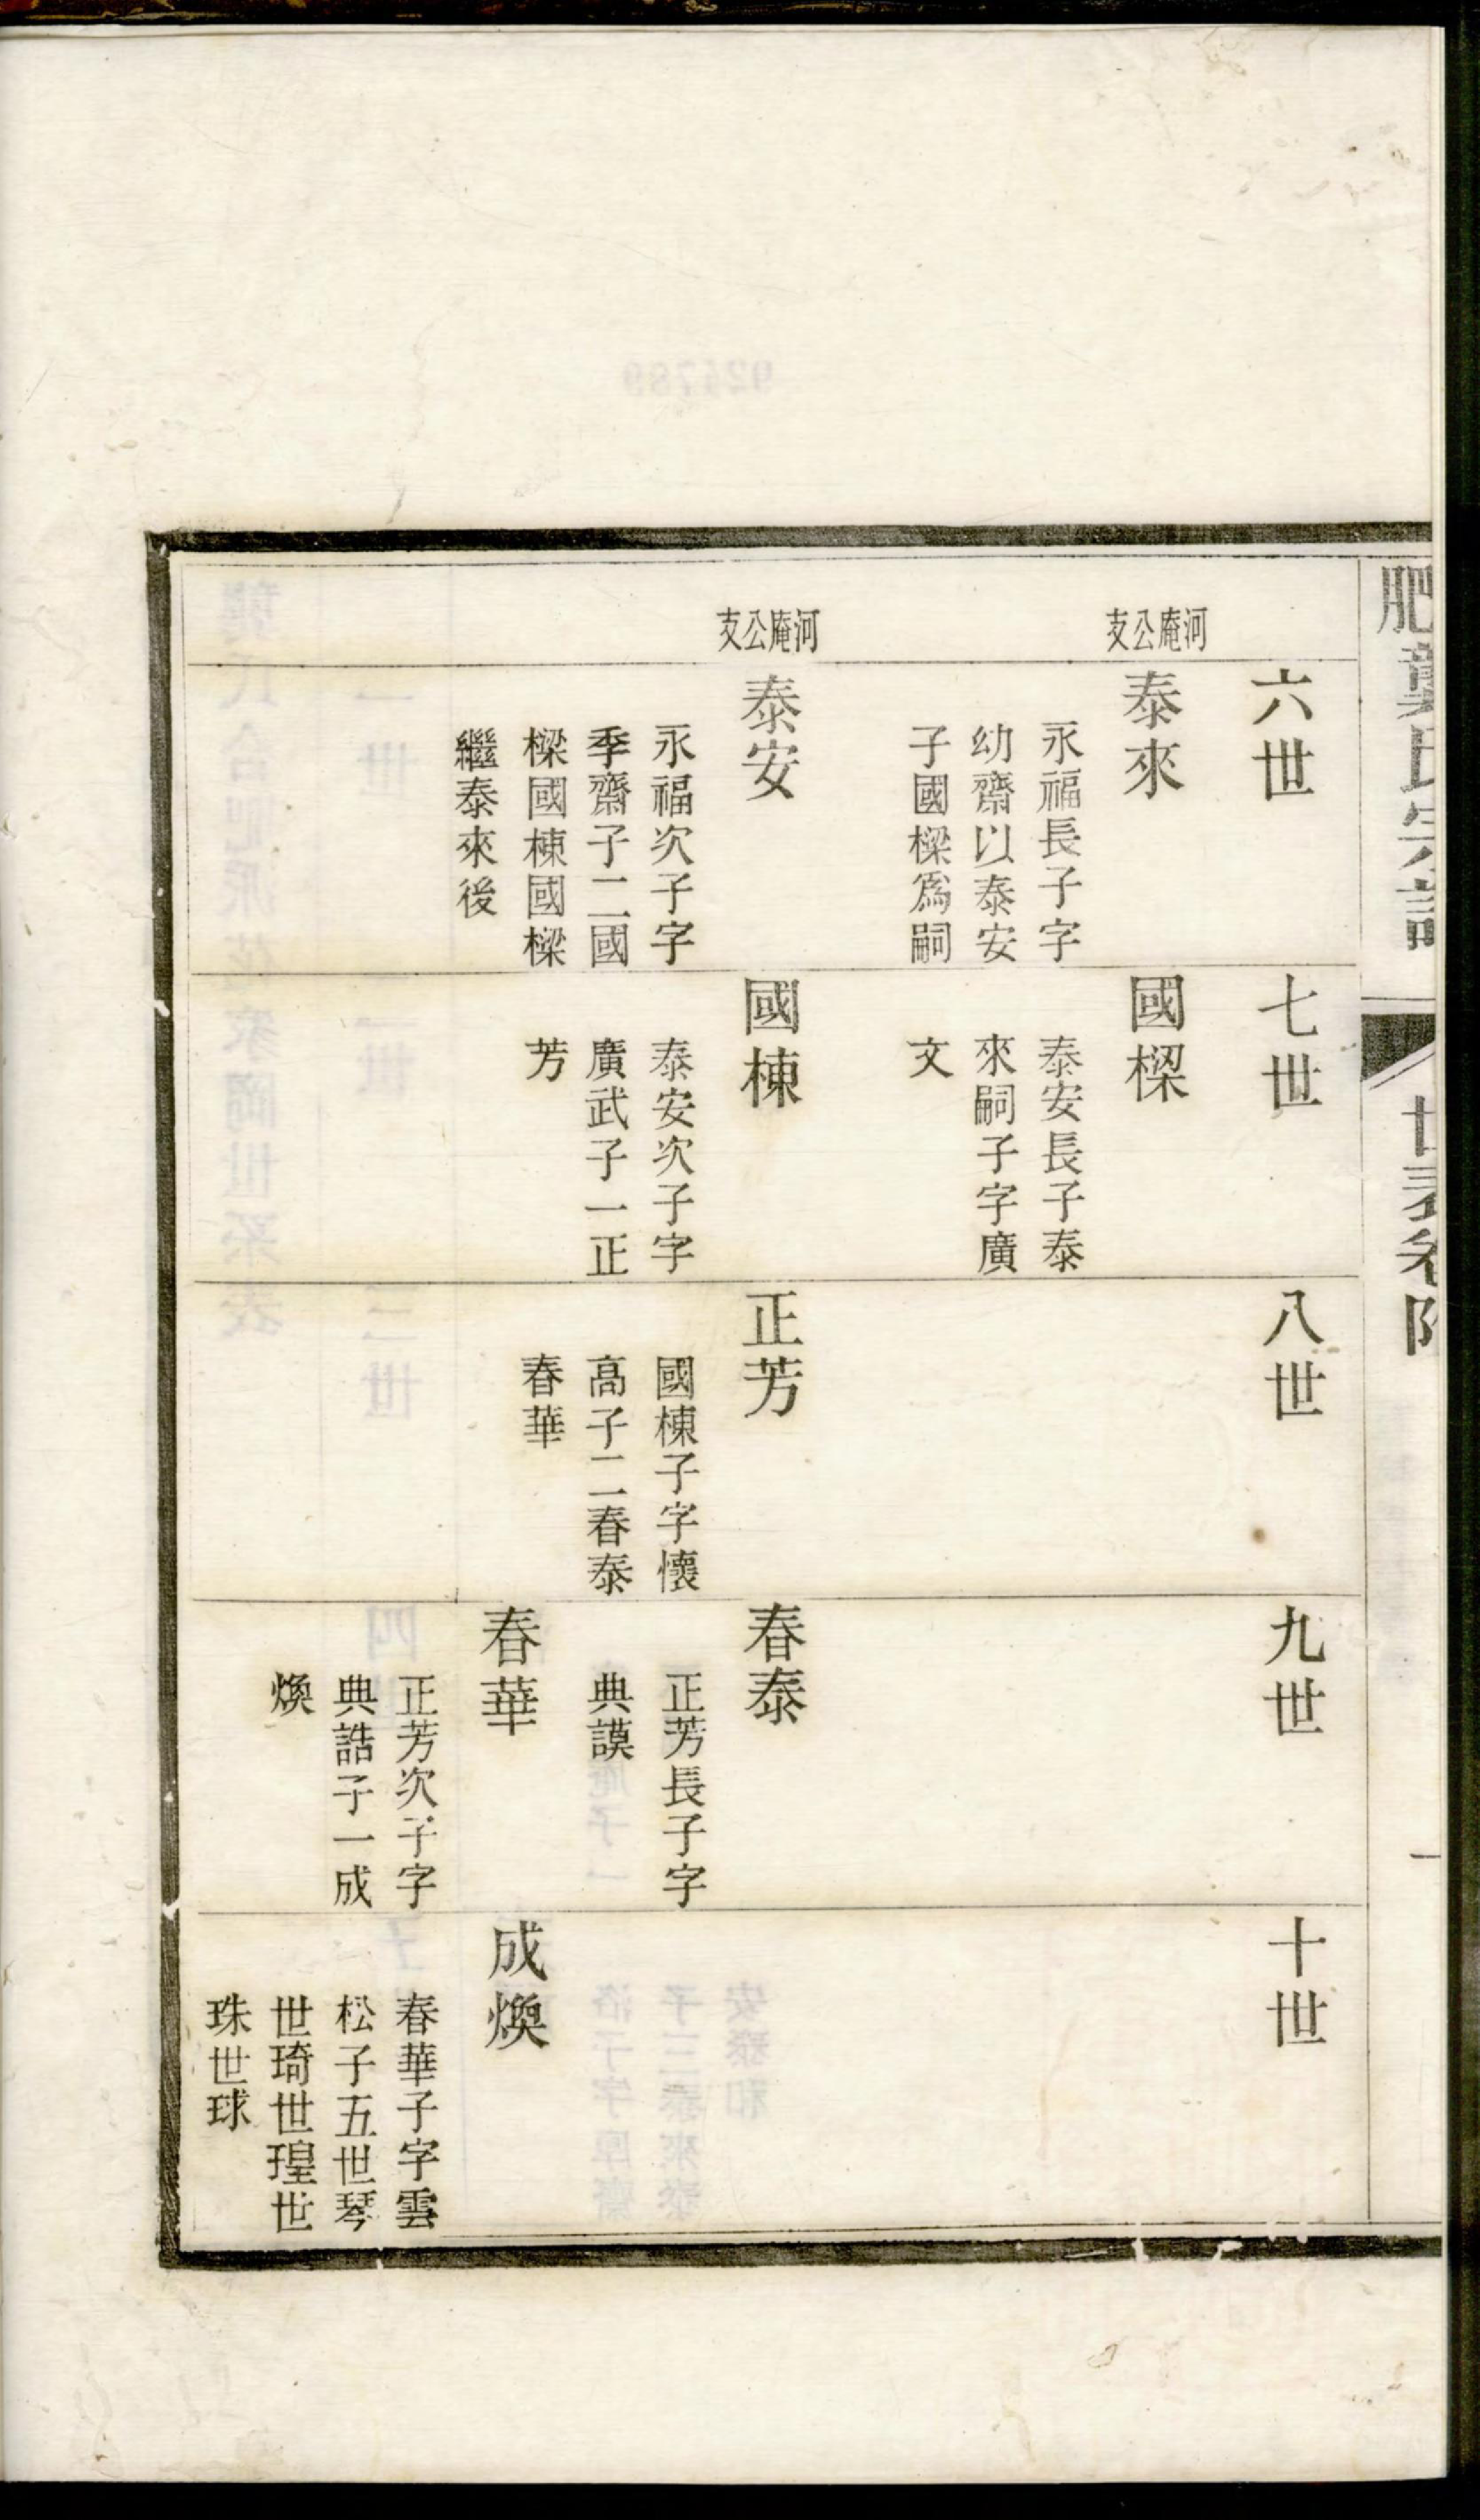 六世
七世
八世
九世
十世
河庵公支
泰來
永福長子字
幼齋以泰安
子國樑爲嗣
國樑
泰安長子泰
來嗣子字廣
文
河庵公支
泰安
永福次子字
季齋子二國
樑國棟國樑
繼泰來後
國棟
泰安次子字
廣武子一正
芳
正芳
國棟子字懷
高子二春泰
春華
春泰
正芳長子字
典謨
春華
正芳次子字
典誥子一成
煥
成煥
春華子字雲
松子五世琴
世琦世瑝世
珠世球